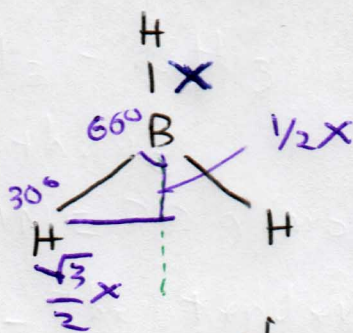 H
X
60° B 1/2 X
30°
H H
√3/2 X